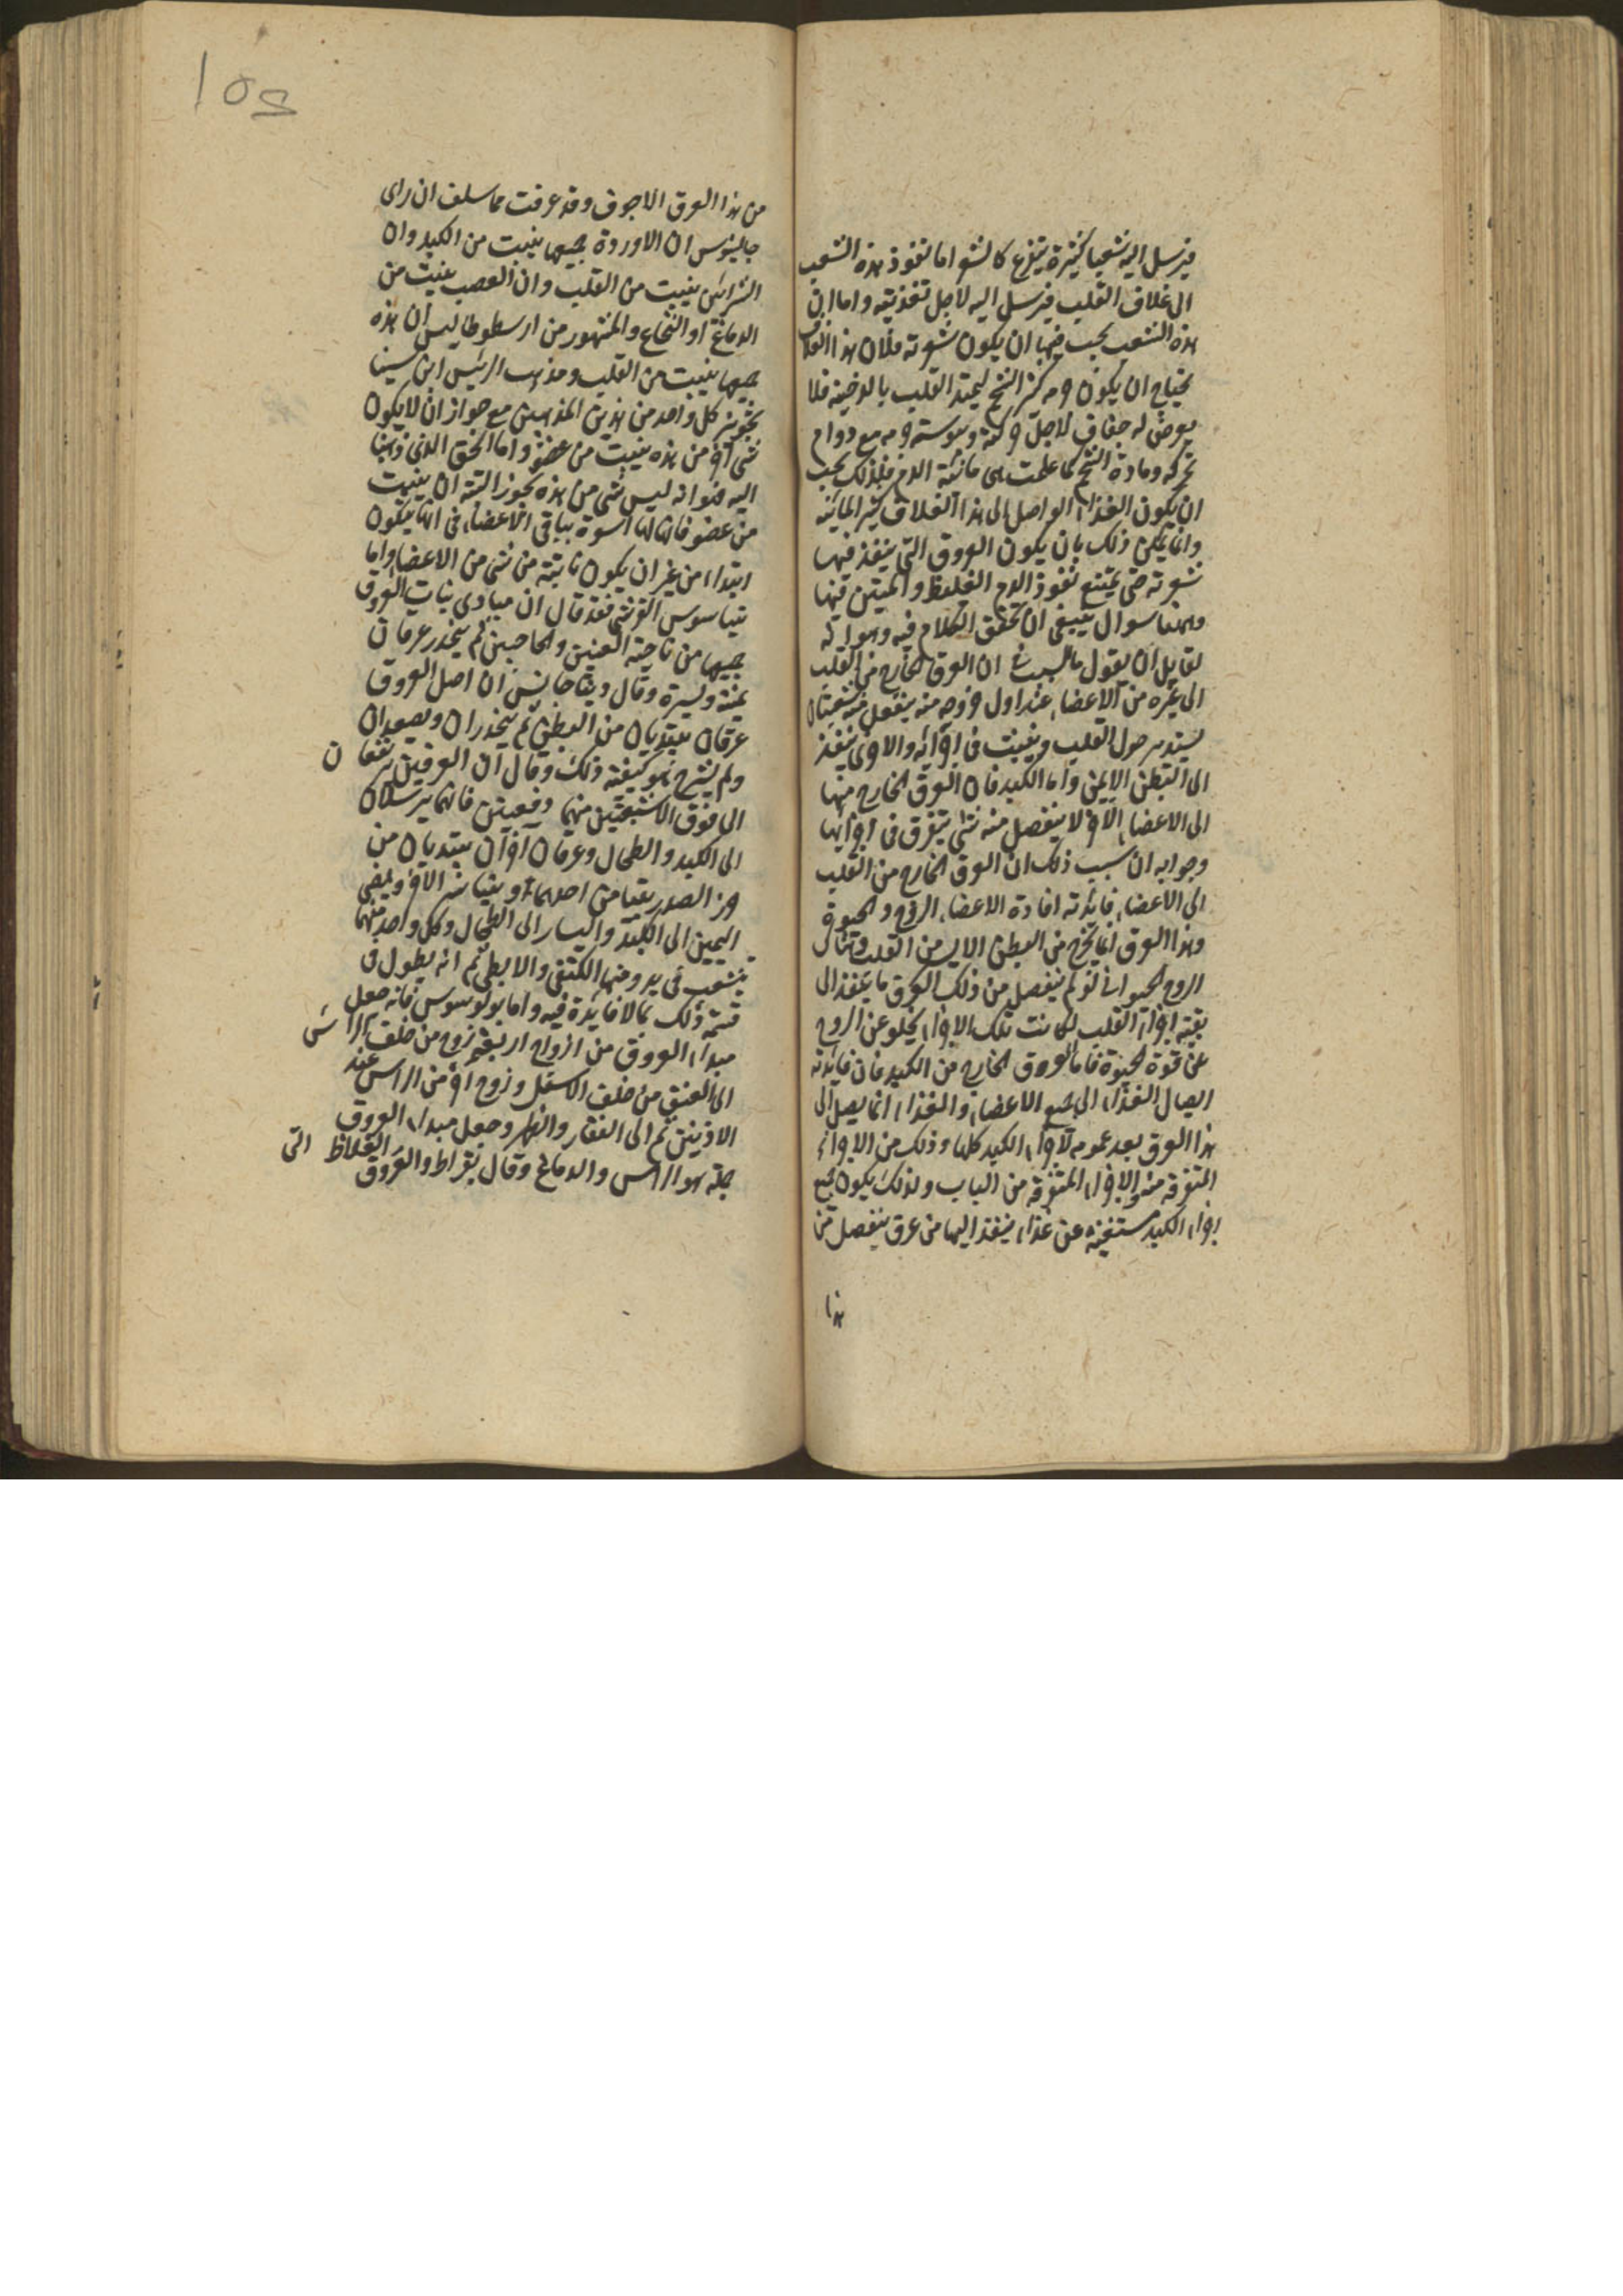 فيرسل اليه شعبا كثيرة يتفرع كالشعر اما نفوذ هذه الشعب
الى غلاف القلب فيرسل اليه لاجل تغذيته واما ان
هذه الشعب يجب فيها ان يكون شعرية فلان هذا الغلاف
يحتاج ان يكون جرمه كثير الشحم ليمد القلب بالدهنية فلا
يعرض له جفاف لاجل حركته ويبوسته جرمه مع دوام
تحركه ومادة الشحم كما علمت هى مائية الدم فلذلك يجب
ان يكون الغذاء الواصل الى هذا الغلاف كثير المائية
وانما يمكن ذلك بان يكون العروق التى ينفذ فيها
شعرية حتى يمتنع نفوذ الدم الغليظ والمتين فيها
وههنا سوال ينبغى ان نحقق الكلام فيه وهو انه
لقايل ان يقول ما السبب فى ان العرق الخارج من القلب
الى غيره من الاعضاء عند اول خروجه منه ينفصل منه شعبتان
يستدير حول القلب وينبت فى اجزائه والاخرى ينفذ
الى البطن الايمن واما الكبد فان العرق الخارج منها
الى الاعضاء الاخر لا ينفصل منه شئ يتفرق فى اجزائها
وجوابه ان سبب ذلك ان العرق الخارج من القلب
الى الاعضاء فايدته افادة الاعضاء الروح والحيوة
وهذا العرق انما يخرج من البطن الايسر من القلب وهناك
الروح الحيوانى فلو لم ينفصل من ذلك العرق ما ينفذ الى
بقية اجزاء القلب لكانت تلك الاجزاء يخلو عن الروح
عن قوة الحيوة فاما العروق الخارج من الكبد فان فايدته
ايصال الغذاء الى جميع الاعضاء والغذاء انما يصل الى
هذا العرق بعد عمومه لاجزاء الكبد كلها وذلك من الاجزاء
المتفرقه منه والاجزاء المتفرقة من الباب ولذلك يكون جميع
اجزاء الكبد مستغنية عن غذاء ينفذ اليها من عرق ينفصل من
هذا
من هذا العرق الاجوف وقد عرفت مما سلف ان راى
جالينوس ان الاوردة جميعها ينبت من الكبد وان
الشرائين ينبت من القلب وان العصب ينبت من
الدماغ او النخاع والمشهور من ارسطوطاليس ان هذه
جميعها ينبت من القلب ومذهب الرئيس ابن سينا
تجويز كل واحد من هذين المذهبين مع جواز ان لا يكون
شئ اخر من هذه ينبت من عضو واما الحق الذى ذهبنا
اليه فهو انه ليس شئ من هذه يجوز البتة ان ينبت
من عضو فانها لها اسوة بباقى الاعضاء فى انها يتكون
ابتداء من غير ان يكون نابتة من شئ من الاعضاء واما
القرشى فقد قال ان مبادى نبات العروق
جميعها من ناحية العينين والحاجبين ثم ينحدر عرقان
يمنة ويسرة وقال ان اصل العروق
عرقان يبتديان من البطن ثم ينحدران ويصعدان
ولم يشرح نحو كيفية ذلك وقال ان العرقين يرتفعان
الى فوق منهما فانهما يرسلان
الى الكبد والطحال وعرقان اخران يبتديان من
الصدر يتيامن احدهما ويتياسر الاخر ويمضى
اليمين الى الكبد واليسار الى الطحال وكل واحد منهما
يتشعب فى والكتفى والابطى ثم انه يطول فى
قسمة ذلك بما لا فايدة فيه واما بولوبوس فانه جعل
مبداء العروق من ازواج اربعة زوج من خلف الراس
الى العنق من خلف الاسفل وزوج اخر من الراس عند
الاذنين ثم الى الفقار والظهر وجعل مبداء العروق
جملة هو الراس والدماغ وقال بقراط والعروق الغلاظ التى